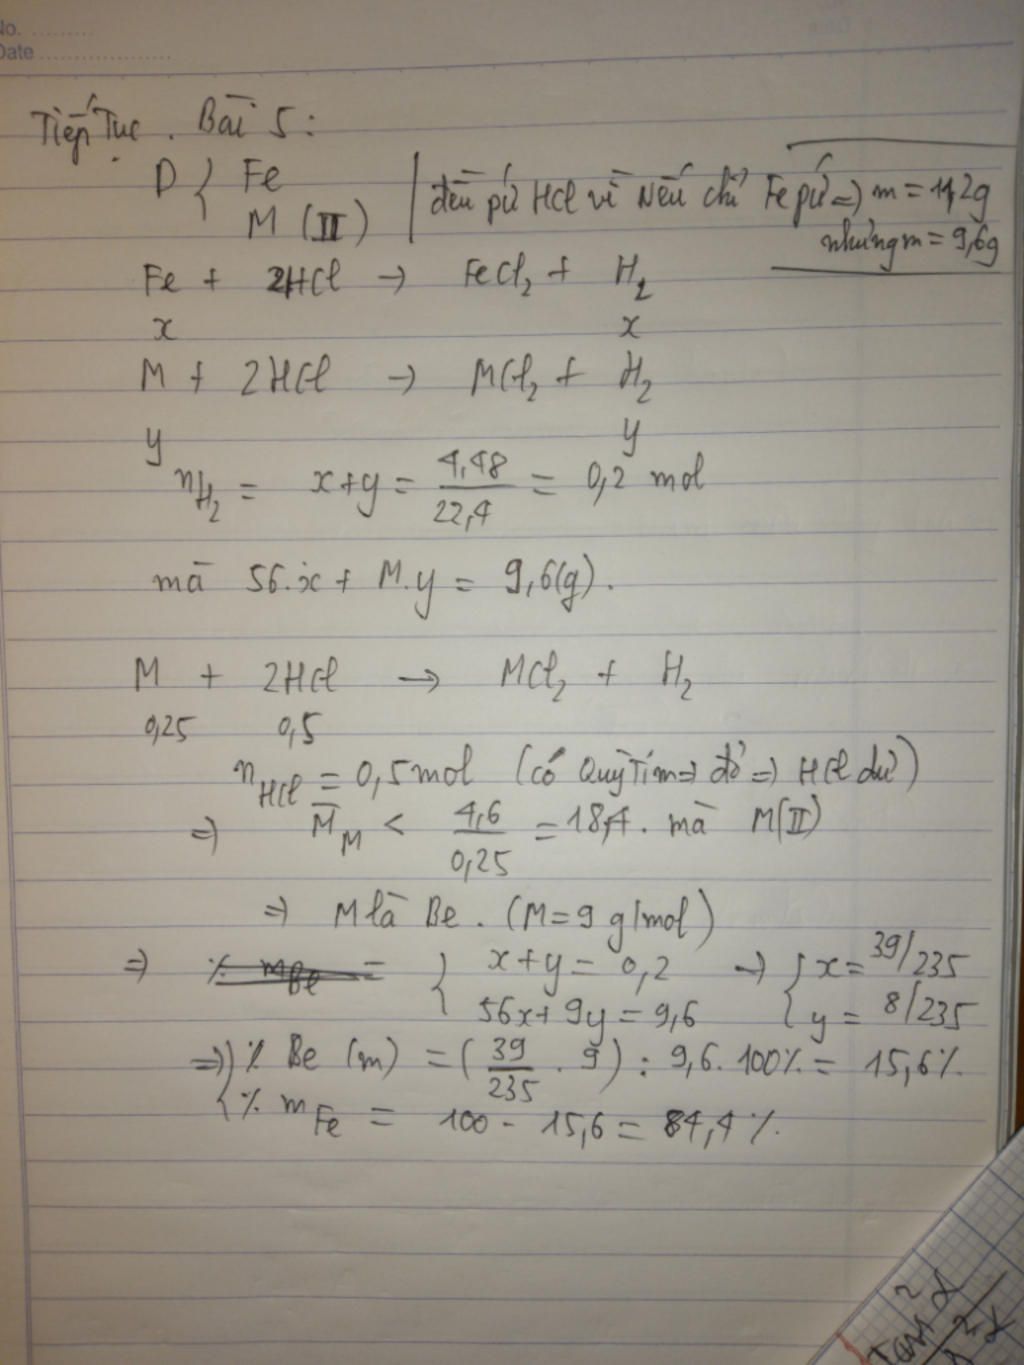 No. .........
Date ....................
Tiếp Tục. Bài 5:
D { Fe
M (II)
đều pứ HCl vì Nếu chỉ Fe pứ => m = 11,2g
nhưng m = 9,6g
Fe + 2HCl → FeCl₂ + H₂
x x
M + 2HCl → MCl₂ + H₂
y y
nH₂ = x+y = 4,48/22,4 = 0,2 mol
mà 56.x + M.y = 9,6(g).
M + 2HCl → MCl₂ + H₂
0,25 0,5
nHCl = 0,5mol (có Quỳ Tím => đỏ => HCl dư)
=> M̅M < 4,6/0,25 = 18,4. mà M(II)
=> M là Be. (M=9 g/mol)
=> % mBe = { x+y = 0,2 → { x = 39/235
56x+9y = 9,6 y = 8/235
=> { % Be (m) = (39/235 . 9) : 9,6.100% = 15,6%.
% mFe = 100 - 15,6 = 84,4%.
tan²x